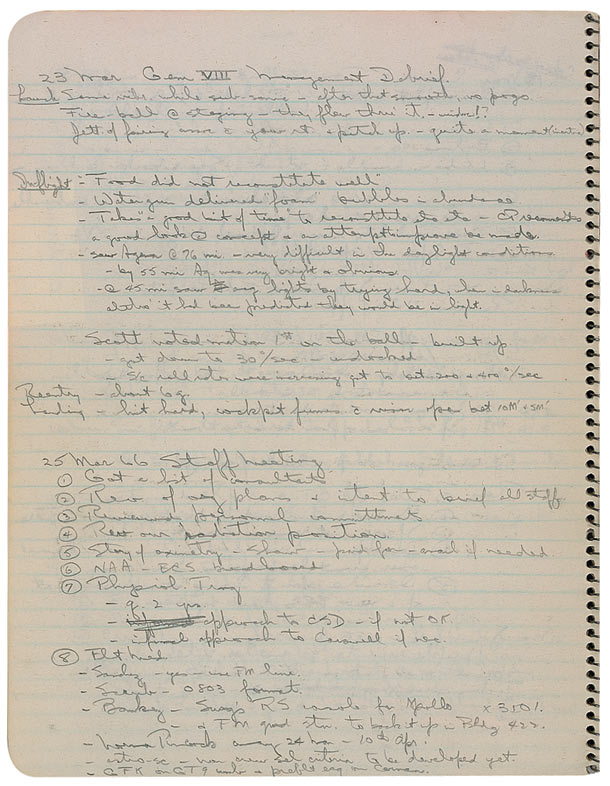 23 Mar Gem VIII Management Debrief
Launch Some vibs. while sub-sonic - after that smooth, no pogo.
Fire-ball @ staging - they flew thru it. - ?
Jett of fairing & your rt. & patch up. - quite a
Inflight - "Food did not reconstitute well"
- Water gun delivered "foam" bubbles - abundance
- Takes a good bit of time to reconstitute - recommends
a good look @ concept & an attempt to improve be made.
- saw Agena @ 76 mi - very difficult in the daylight conditions
- by 55 mi Ag was very bright & obvious
- @ 45 mi saw ag lights by trying hard, in darkness
altho' it had been predicted they would be in light.
Scott noted motion 1st on the ball - built up
- got down to 30°/sec - undocked
- S/C roll rates were increasing got to bet 200 & 400°/sec
Reentry - about 6g.
Landing - hit hard, cockpit fumes & visor open bet 10M' & 5M'
25 Mar 66 Staff Meeting
① Got a list of consultants
② Review of org plans & intent to brief all staff
③ Reviewed personal commitments
④ Rev our radiation position
⑤ Story of - Shaw - paid for - if needed.
⑥ NAA - ECS breadboard
⑦ Physiol. Trng
- q. 2 yrs.
- approach to CSD - if not OK
- informal approach to if nec.
⑧ Flt Med
- Sandy - yes - use FM line.
- - 0803 format.
- - RS console for Apollo x3101.
- & FM good stn. to back it up in Bldg 422.
- Norma away 24 Mar - 10th Apr.
- astro-sc - crew sel criteria to be developed yet.
- CFK on GT9